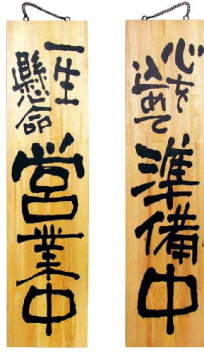 一生
懸命
営業中
心を
込めて
準備中